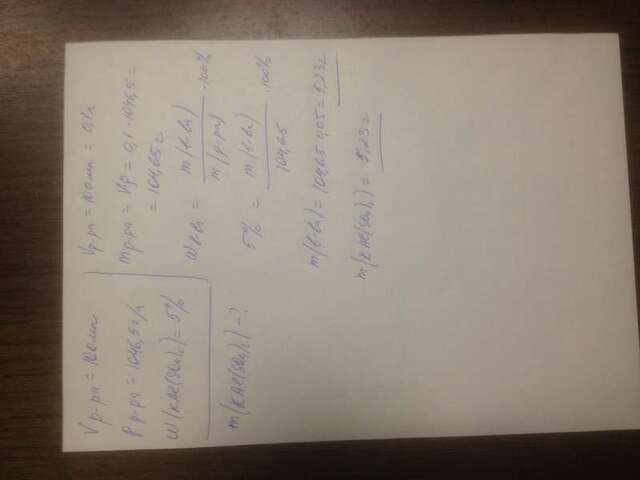 Vр-ра = 100 мл
ρр-ра = 1046,5 г/л
W(KAl(SO₄)₂) = 5%
m(KAl(SO₄)₂) - ?
Vр-ра = 100 мл = 0,1 л
mр-ра = Vρ = 0,1 · 1046,5 =
= 104,65 г
Wв-ва = m(в-ва) / m(р-ра) · 100%
5% = m(в-ва) / 104,65 · 100%
m(в-ва) = 104,65 · 0,05 = 5,23 г
m(KAl(SO₄)₂) = 5,23 г